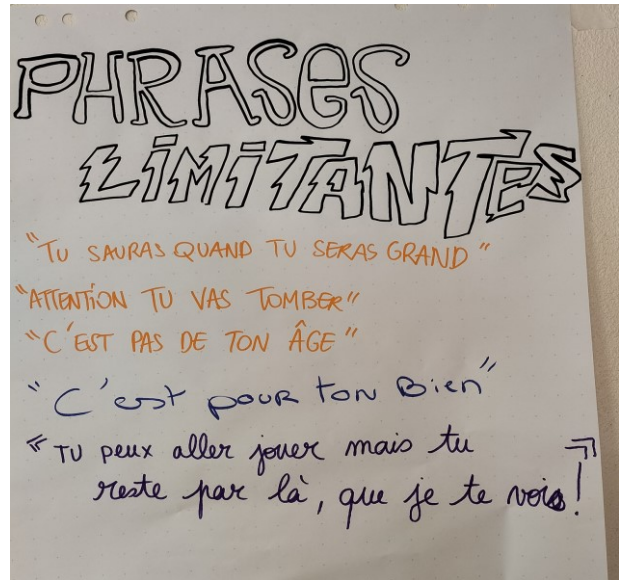 PHRASES
LIMITANTES
"TU SAURAS QUAND TU SERAS GRAND"
"ATTENTION TU VAS TOMBER"
"C'EST PAS DE TON ÂGE"
"C'est pour ton Bien"
"TU peux aller jouer mais tu
reste par là, que je te vois!"